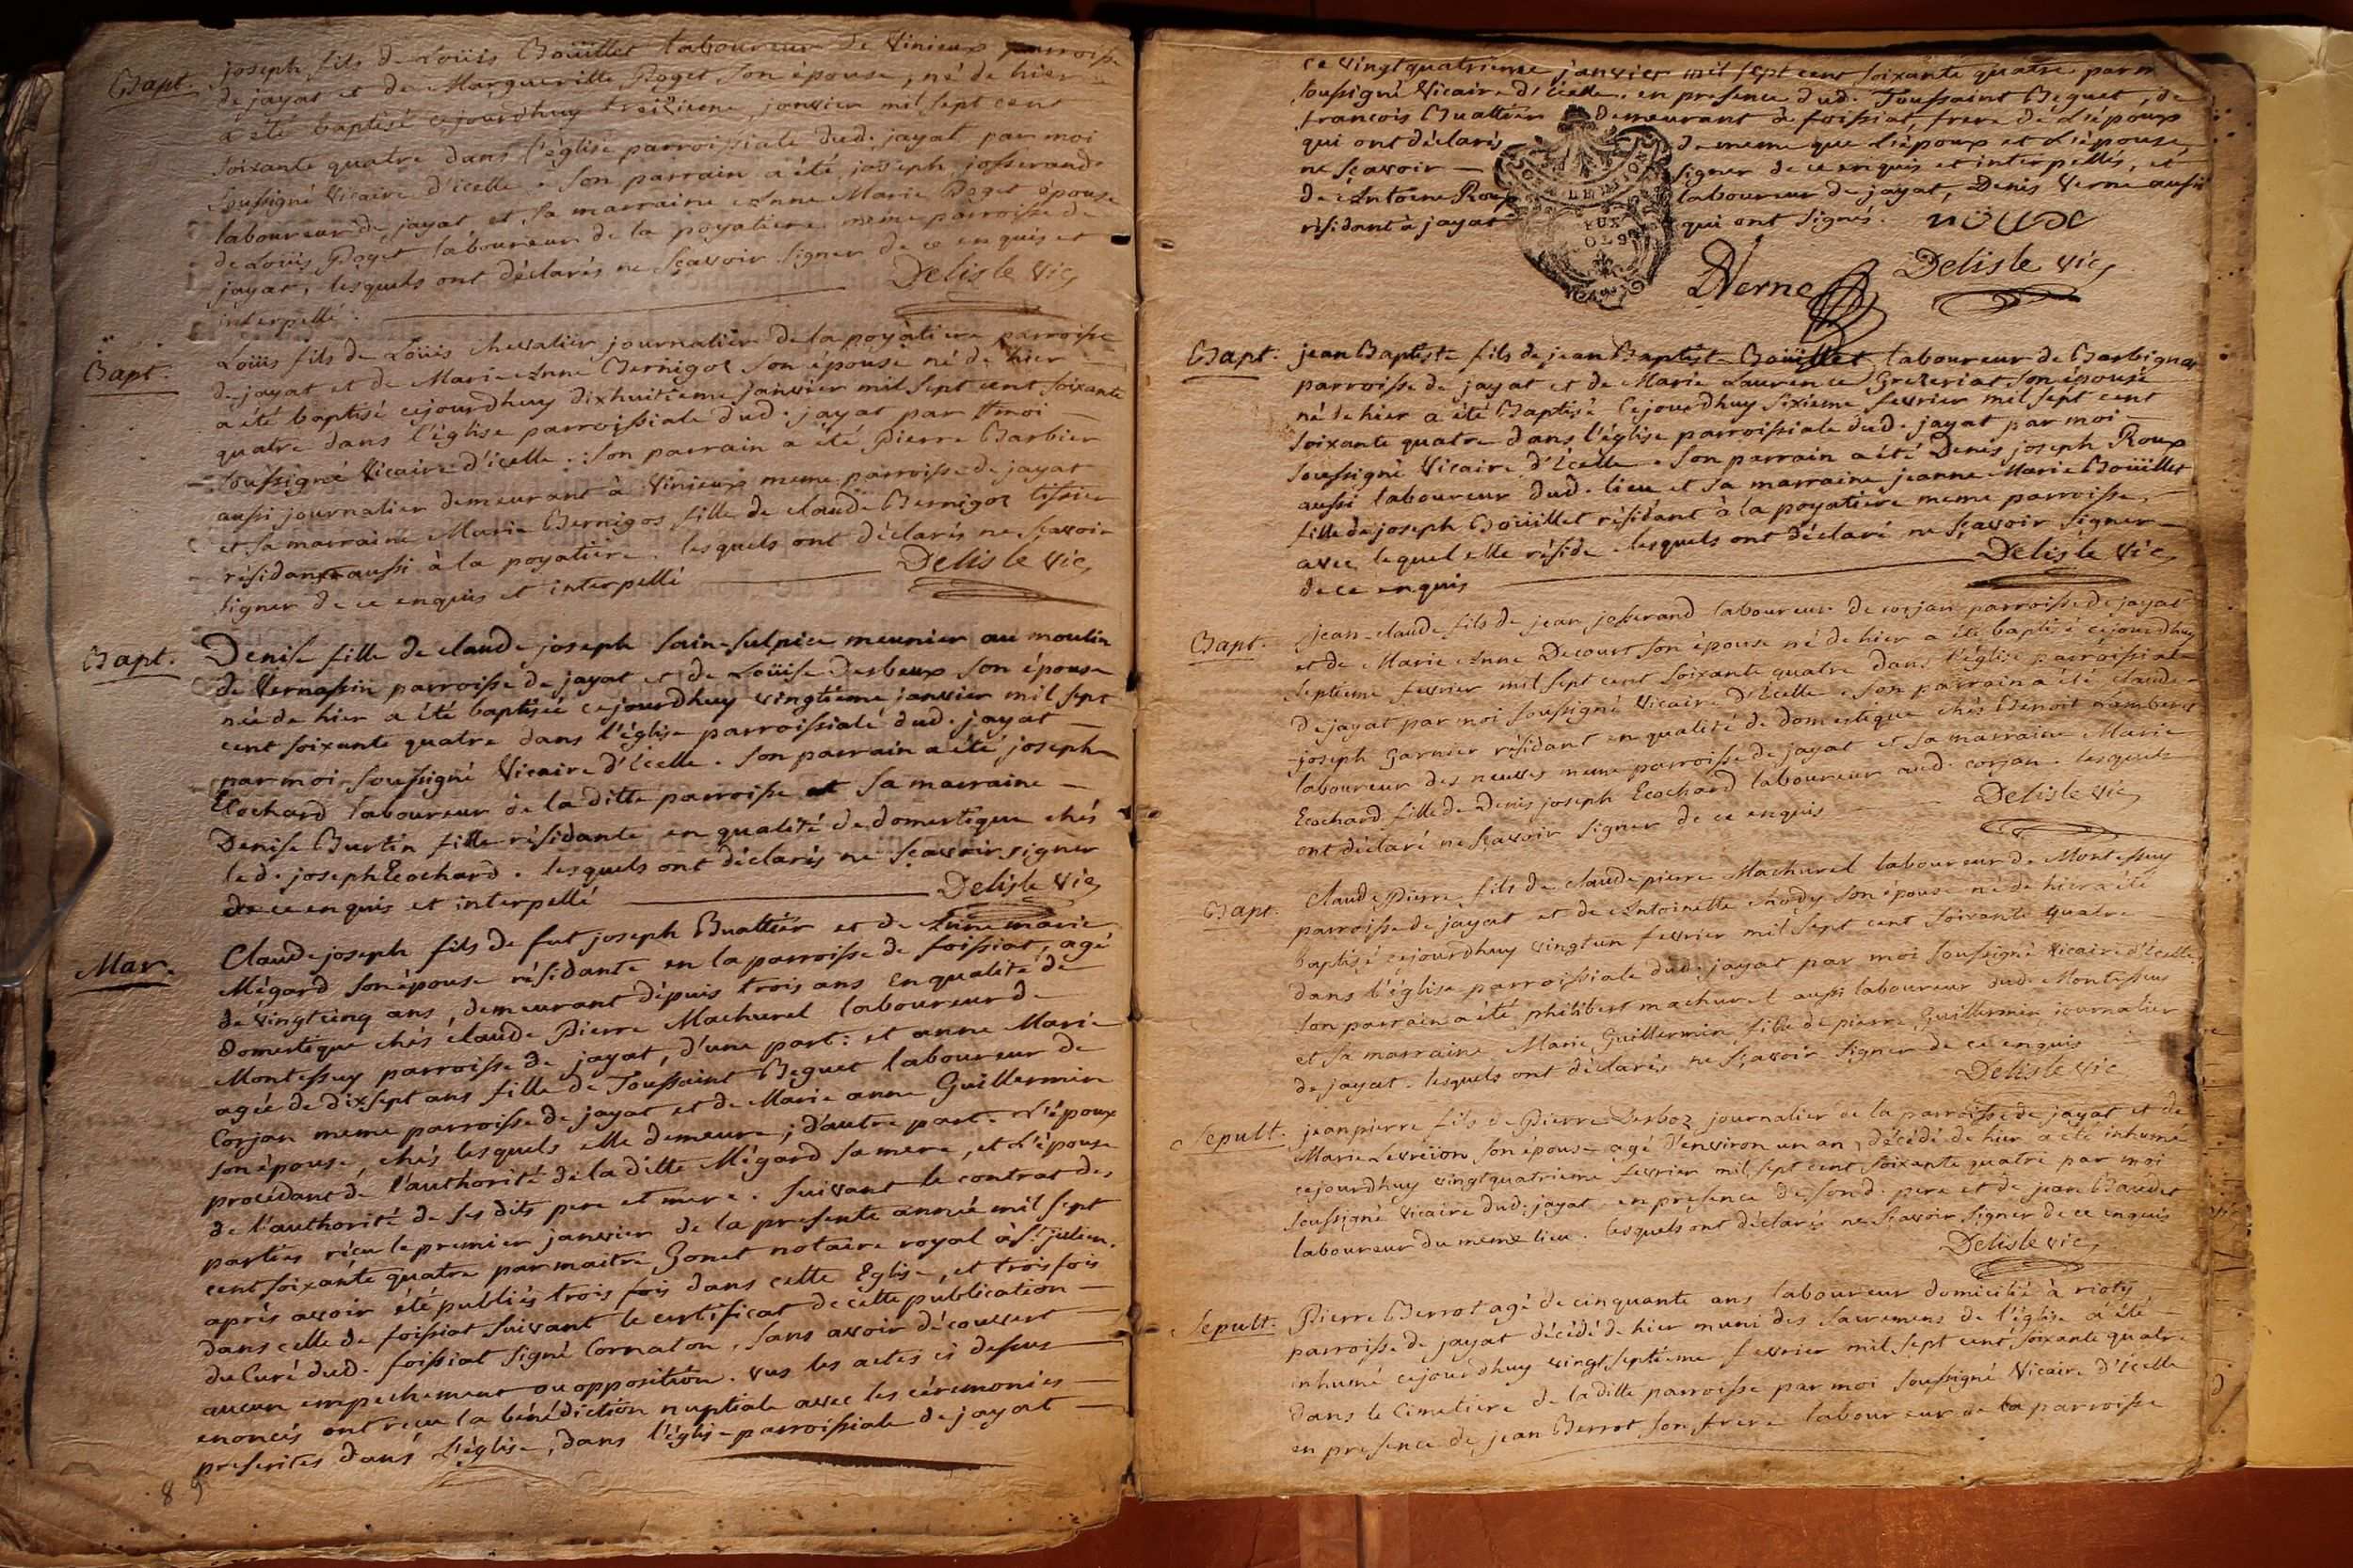 Bapt. joseph fils de Loüis Boüillet laboureur de Vinieux parroisse
de jayat et de Margueritte Poget son épouse, né de hier
a été baptisé cejourdhuy treizieme janvier mil sept cent
soixante quatre dans l'église parroissiale dud. jayat par moi
soussigné Vicaire d'icelle. son parrain a été joseph josserand
laboureur de jayat, et sa marraine Anne Marie Poget épouse
de Loüis Poget laboureur de la poyatiere meme parroisse de
jayat, lesquels ont déclarés ne sçavoir signer de ce enquis et
interpellé. Delisle vic,
Bapt. Loüis fils de Loüis chevalier journalier de la poyatiere parroisse
de jayat et de Marie Anne Bernigol son épouse né de hier
a été baptisé cejourdhuy dixhuitieme janvier mil sept cent soixante
quatre dans l'église parroissiale dud. jayat par moi
soussigné Vicaire d'icelle. son parrain a été pierre Barbier
aussi journalier demeurant à Vinieux meme parroisse de jayat
et sa marraine Marie Bernigol fille de claude Bernigol tissier
résidant aussi à la poyatiere. lesquels ont déclarés ne sçavoir
signer de ce enquis et interpellé Delisle vic,
Bapt. Denise fille de claude joseph Sain-sulpice meunier au moulin
de Vernassin parroisse de jayat et de Loüise Desbeux son épouse
née de hier a été baptisée cejourdhuy vingtieme janvier mil sept
cent soixante quatre dans l'église parroissiale dud. jayat
par moi soussigné Vicaire d'icelle. son parrain a été joseph
Ecochard laboureur de la ditte parroisse et sa marraine
Denise Burtin fille résidante en qualité de domestique chés
led. joseph Ecochard. lesquels ont déclarés ne sçavoir signer
de ce enquis et interpellé Delisle vic,
Mar. Claude joseph fils de fut joseph Buattier et de Anne marie
Mégard son épouse résidante en la parroisse de foissiat, agé
de vingtcinq ans, demeurant dépuis trois ans en qualité de
domestique chés claude Pierre Machurel laboureur de
Montessuy parroisse de jayat, d'une part: et anne Marie
agée de dixsept ans fille de Toussaint Beguet laboureur de
Corjan meme parroisse de jayat et de Marie anne Guillermin
son épouse, chés lesquels elle demeure; d'autre part. L'époux
procédant de l'authorité de la ditte Mégard sa mere, et L'épouse
de l'authorité de ses dits pere et mere. suivant le contrat des
parties réçu le premier janvier de la presente année mil sept
cent soixante quatre par maitre Gonet notaire royal à St. julien.
aprés avoir été publiés trois fois dans cette Eglise, et trois fois
dans celle de foissiat suivant le certificat de cette publication
du Curé dud. foissiat signé Cornaton, sans avoir découvert
aucun empechement ou opposition. vus les actes ci dessus
enoncés ont reçu la bénédiction nuptiale avec les céremonies
prescrites dans L'église, dans l'église parroissiale de jayat
89
ce vingtquatrieme janvier mil sept cent soixante quatre par m
soussigné Vicaire d'icelle. en presence dud. Toussaint Beguet, de
francois Buattier demeurant à foissiat, frere de L'époux
qui ont déclarés de meme que L'époux et L'épouse
ne sçavoir signer de ce enquis et interpellés, et
de Antoine Roux laboureur de jayat, Denis Verne aussi
résidant à jayat qui ont signés.
DVerne Delisle vic,
Bapt. jean Baptiste fils de jean Baptiste Boüillet laboureur de Barbignat
parroisse de jayat et de Marie Laurence Grezeriat son épouse
né de hier a été Baptisé cejourdhuy sixieme fevrier mil sept cent
soixante quatre dans l'église parroissiale dud. jayat par moi
soussigné Vicaire d'icelle. son parrain a été Denis joseph Roux
aussi laboureur dud. lieu et sa marraine jeanne Marie Boüillet
fille de joseph Boüillet résidant à la poyatiere meme parroisse,
avec lequel elle réside. lesquels ont déclaré ne sçavoir signer
de ce enquis Delisle vic,
Bapt. jean-claude fils de jean josserand laboureur de corjan parroisse de jayat
et de Marie Anne Decourt son épouse né de hier a été baptisé cejourdhuy
septieme fevrier mil sept cent soixante quatre dans l'église parroissiale
de jayat par moi soussigné Vicaire d'icelle. son parrain a été claude
joseph Garnier résidant en qualité de domestique chés Benoit
laboureur des meme parroisse de jayat et sa marraine Marie
Ecochard fille de Denis joseph Ecochard laboureur aud. corjan. lesquels
ont déclaré ne sçavoir signer de ce enquis Delisle vic,
Bapt. Claude Pierre fils de claude pierre Machurel laboureur de Montessuy
parroisse de jayat et de Antoinette Chody son épouse né de hier a été
baptisé cejourdhuy vingtun fevrier mil sept cent soixante quatre
dans l'église parroissiale dud. jayat par moi soussigné Vicaire d'icelle
son parrain a été philibert machurel aussi laboureur dud. Montessuy
et sa marraine Marie Guillermin fille de pierre Guillermin journalier
de jayat. lesquels ont déclarés ne sçavoir signer de ce enquis
Delisle vic
Sepult. jean pierre fils de Pierre Derboz journalier de la parroisse de jayat et de
Marie Levreion son épouse agé d'environ un an, décédé de hier a été inhumé
cejourdhuy vingtquatrieme fevrier mil sept cent soixante quatre par moi
soussigné Vicaire dud. jayat en presence de sond. pere et de jean Baudet
laboureur du meme lieu. lesquels ont déclarés ne sçavoir signer de ce enquis
Delisle vic,
Sepult. Pierre Berrot agé de cinquante ans laboureur domicilié à
parroisse de jayat décédé de hier muni des sacremens de l'église a été
inhumé cejourdhuy vingtseptieme fevrier mil sept cent soixante quatre
dans le Cimetiere de la ditte parroisse par moi soussigné Vicaire d'icelle
en presence de jean Berrot son frere laboureur de la parroisse